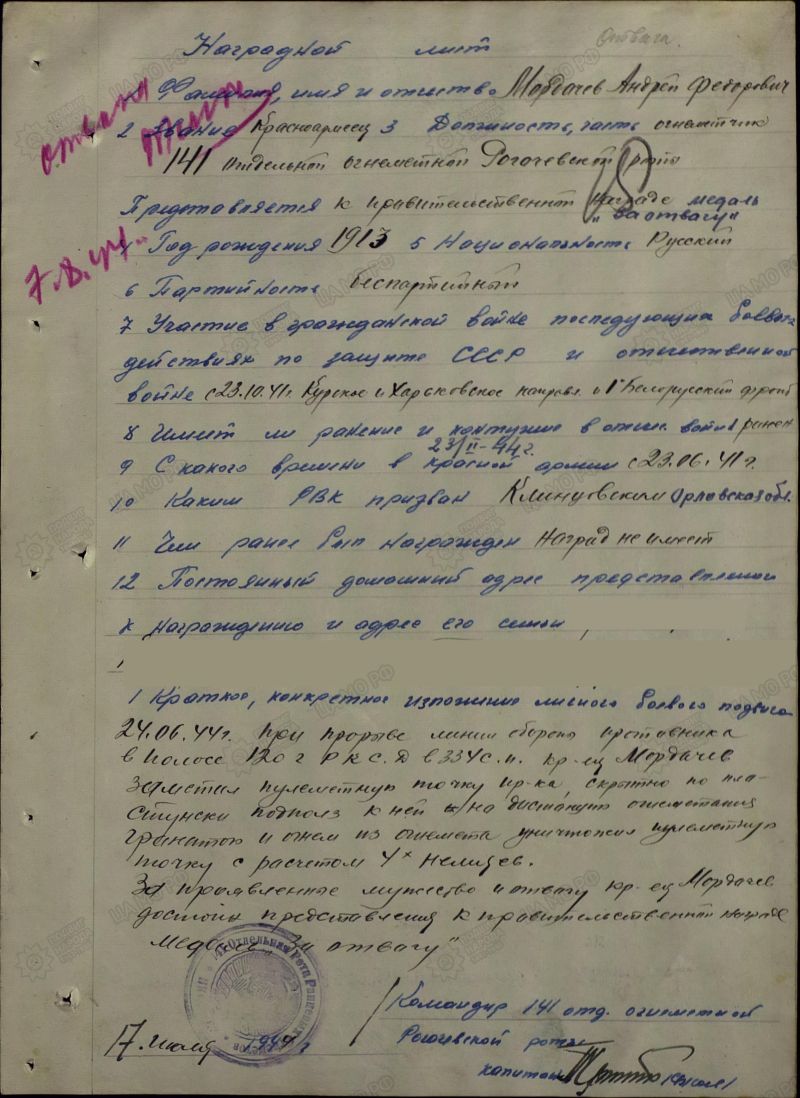 Отвага
Наградной лист
отвага
отвага
1 Фамилия, имя и отчество Мордачев Андрей Федорович
2 Звание Красноармеец 3 Должность, часть огнеметчик
141 отдельной огнеметной Рогачевской роты
Представляется к правительственной награде медаль
"За отвагу"
7.8.44г.
4 Год рождения 1913 5 Национальность Русский
6 Партийность беспартийный
7 Участие в гражданской войне последующих боевых
действиях по защите СССР и отечественной
войне с 23.10.41г Курское и Харьковское направл. и 1й Белорусский фронт
8 Имеет ли ранение и контузию в отеч. войне ранен
23/II-44г.
9 С какого времени в красной армии с 23.06.41г.
10 Каким РВК призван Клинцовским Орловская обл.
11 Чем ранее был награжден Наград не имеет
12 Постоянный домашний адрес представленного
к награждению и адрес его семьи,
1 Краткое, конкретное изложение личного боевого подвига
24.06.44г. при прорыве линии обороны противника
в полосе 120 г Р К с.д в 334 с.п. кр-ец Мордачев
заметил пулеметную точку пр-ка, скрытно по пла-
стунски подполз к ней на дистанцию огнеметания
гранатой и огнем из огнемета уничтожил пулеметную
точку с расчетом 4х немецев.
За проявленные мужество и отвагу кр-ец Мордачев
достоин представления к правительственной награде
Медаль "За отвагу"
141 Отдельная Рота Ранцевых
17 июля 1944г
Командир 141 отд. огнеметной
Рогачевской роты
капитан